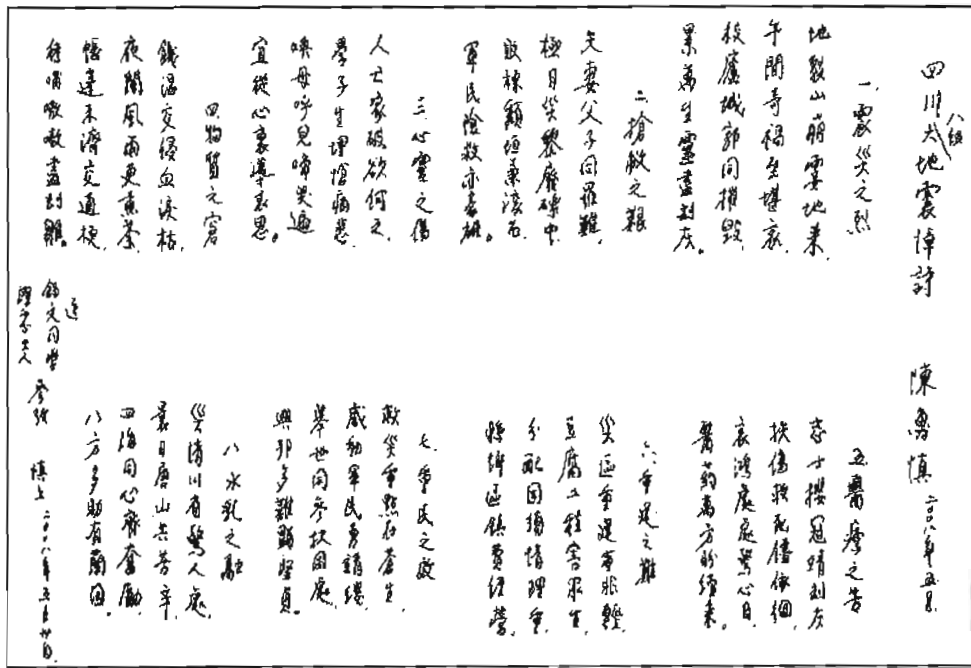 四川八級大地震悼詩
陳魯慎 二〇〇八年五月
一、震災之烈
地裂山崩霎地來,
午間奇禍至堪哀,
校廬城郭同摧毀,
累萬生靈盡劫灰。
二、搶救之艱
夫妻父子同罹難,
極目災黎廢礫中,
敗棟頹垣兼滾石,
軍民搶救亦豪雄。
三、心靈之傷
人亡家破欲何之,
學子生埋愴痛悲,
喚母呼兒啼哭遍,
宜從心裏導哀思。
四、物質之窘
餓濕交侵血淚枯,
夜闌風雨更焦荼,
帳蓬未濟交通梗,
待哺嗷嗷盡劫雛。
五、醫療之苦
志士攖冠蹈劫灰
扶傷救死僅低徊
哀鴻處處驚心目
醫药萬方盼續來。
六、重建之難
災區重建事非輕
豆腐工程害眾生
分配困擾情理重
轉蹲區鎮費經營。
七、重民之政
救災重點在蒼生
感動軍民勇請纓
舉世同參扶困處
興邦多難顯堅貞。
八、水乳之融
災情川有驚人處,
曩日唐山共苦辛
四海同心齊奮勵,
八方多助有蘭因。
送
錦文同學
理要出人
參政 慎上 二〇〇八年五月廿日